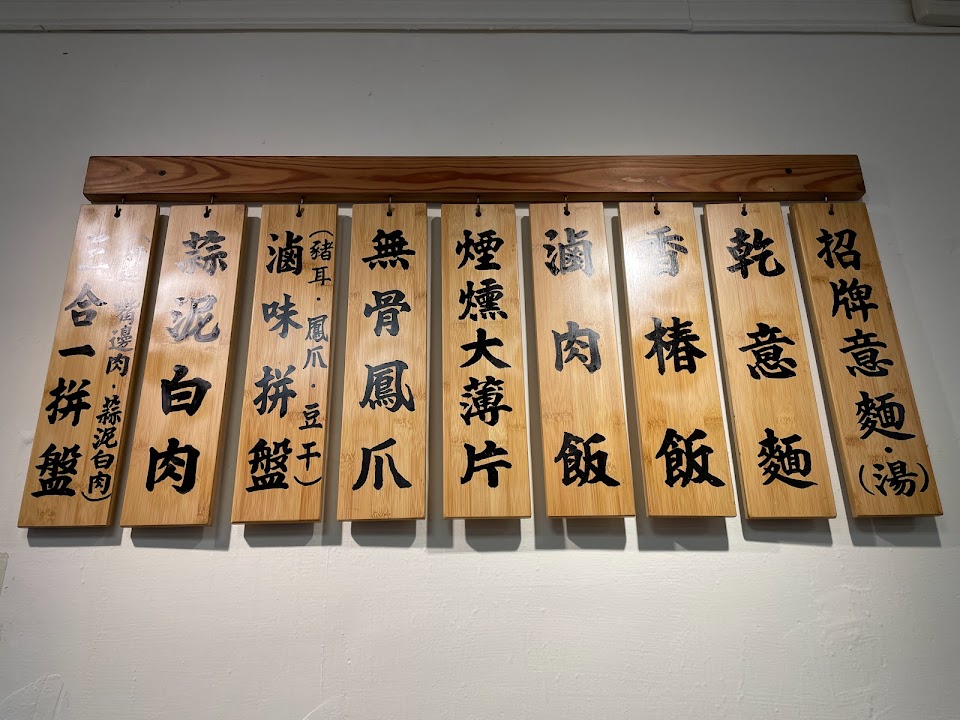 招牌意麵.(湯)
乾意麵
香椿飯
滷肉飯
煙燻大薄片
無骨鳳爪
滷味拼盤
(豬耳.鳳爪.豆干)
蒜泥白肉
三合一拼盤
邊肉.蒜泥白肉)